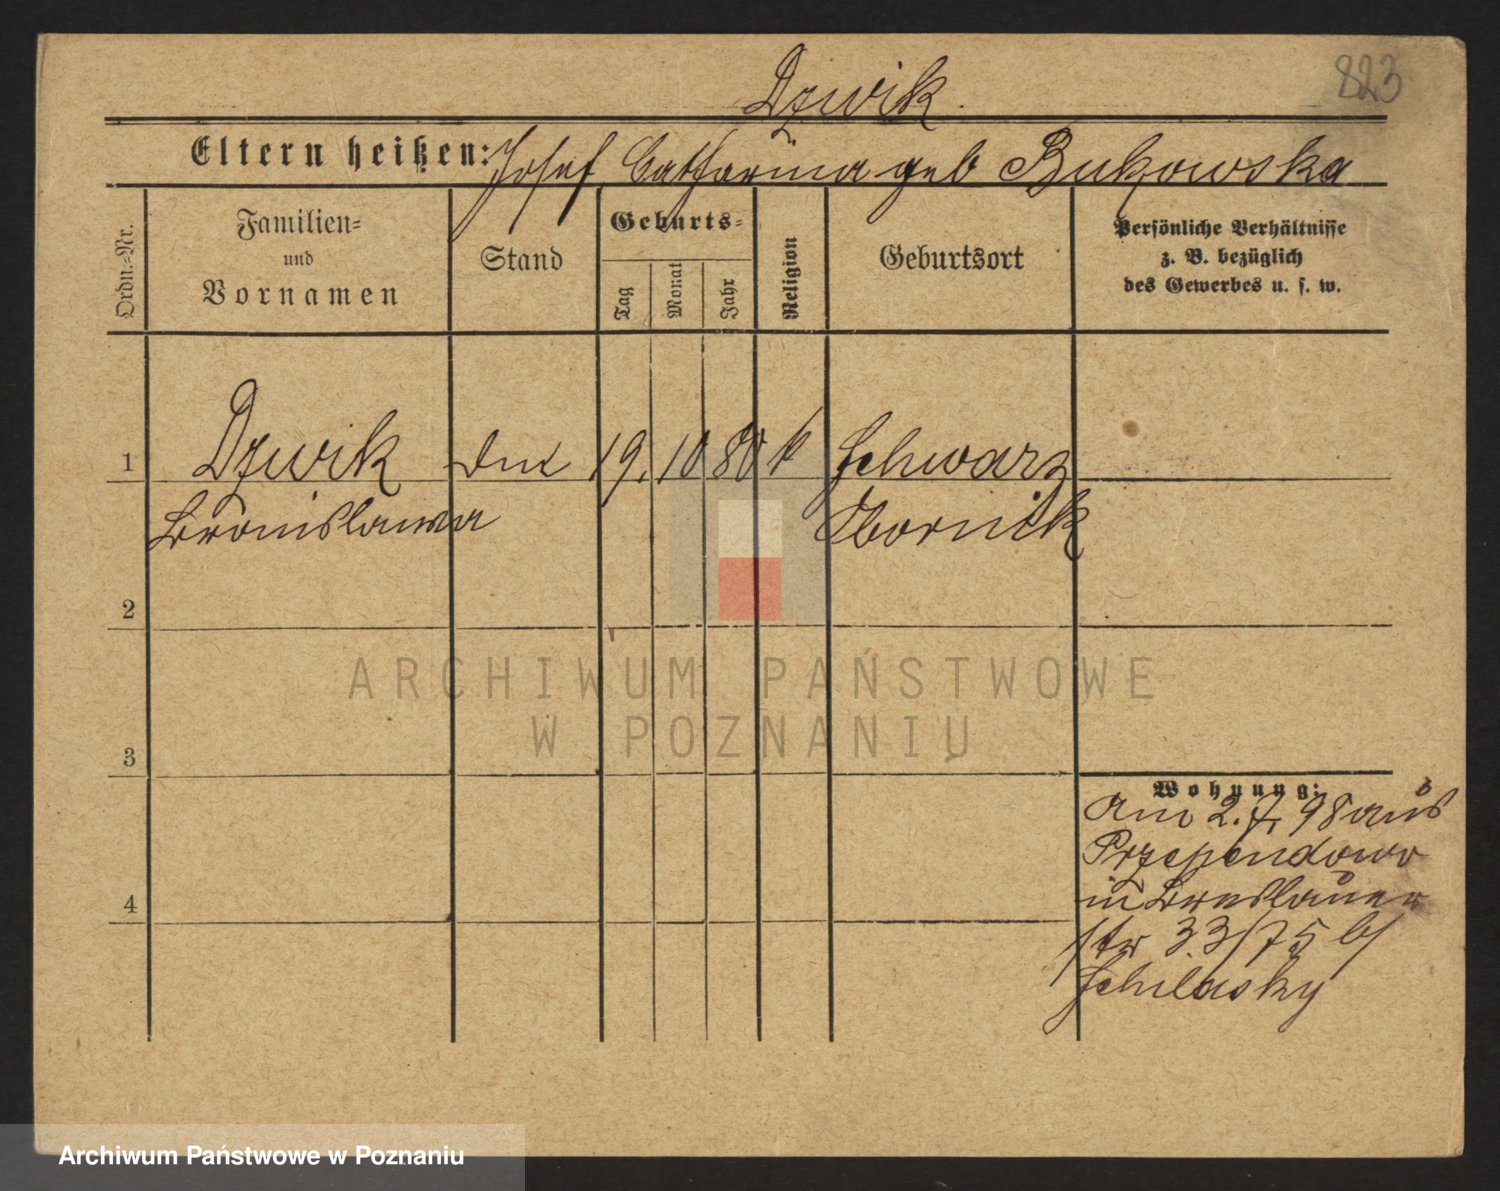 823
Dzwik.
Eltern heißen: Josef Catharina geb Bukowska
Ordn.-Nr.
Familien- und Vornamen
Stand
Geburts-
Tag
Monat
Jahr
Religion
Geburtsort
Persönliche Verhältnisse
z. B. bezüglich
des Gewerbes u. s. w.
1 Dzwik 19. 10 80 k Schwarz
Bronislawa Obornik
2
3
4
Wohnung:
Am 2.7. 98 aus
Przependowo
in Breslauer
str 33/75 b/
ARCHIWUM PAŃSTWOWE
W POZNANIU
Archiwum Państwowe w Poznaniu